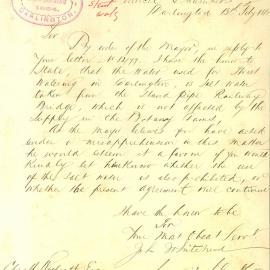 DARLINGTON
Council Chambers
Darlington 13th July 18
Sir
By order of the Mayor, in reply to
your letter No 12/99. I have the honor to
State, that the Water used for Street
Watering in Darlington, is Salt Water
taken from the Stand Pipe Railway
Bridge, which is not affected by the
Supply in the Botany Dams,
As the Mayor believes you have acted
under a misapprehension in this matter
he would esteem it a favor if you would
Kindly let him know whether the use
of the Salt water is also prohibited, or
whether the present agreement will continue
I have the honor to be
Sir
Your Most Obedt Servt
Esq